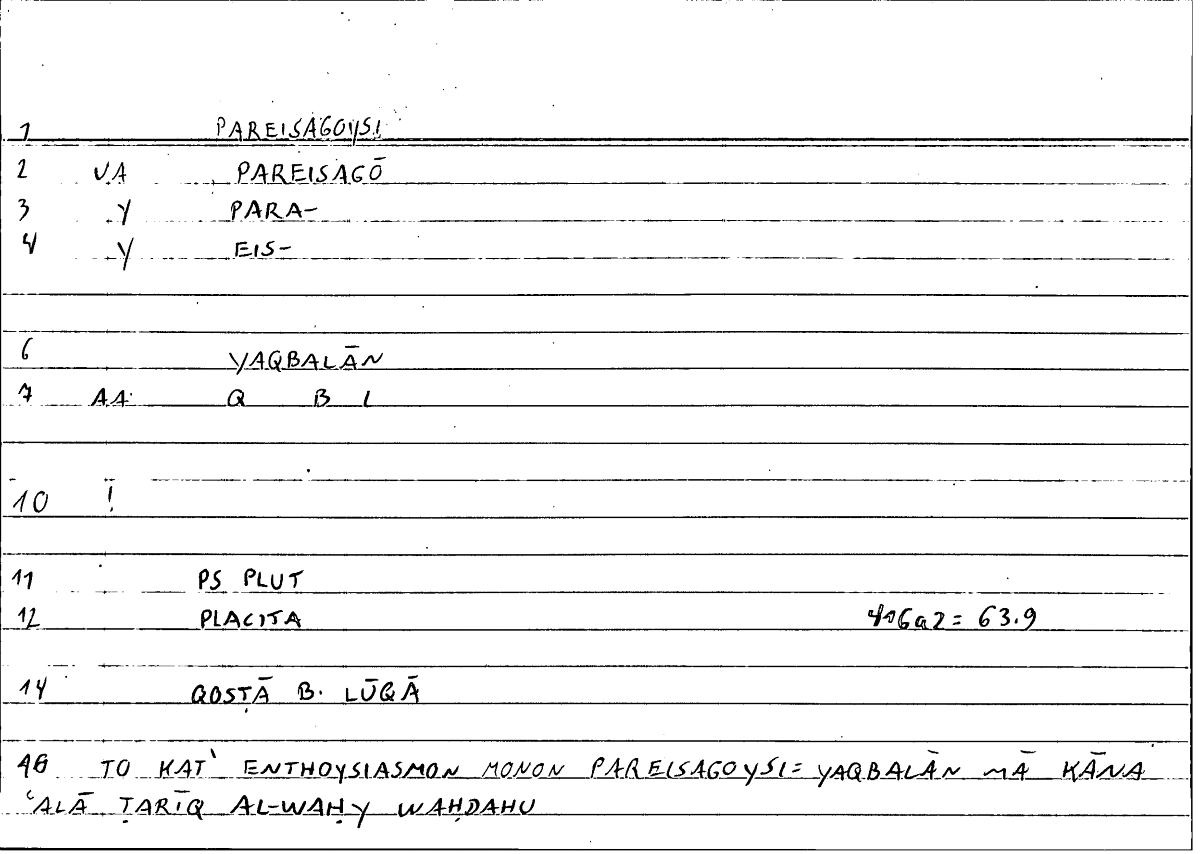 1 PAREISAGOYSI
2 VA PAREISAGŌ
3 Y PARA-
4 Y EIS-
6 YAQBALĀN
7 AA Q B L
10 !
11 PS PLUT
12 PLACITA 416a2 = 63.9
14 QOSṬĀ B. LŪQĀ
TO KAT' ENTHOYSIASMON MONON PAREISAGOYSI= YAQBALĀN MĀ KĀNA
ʿALĀ ṬARĪQ AL-WAḤY WAḤDAHU